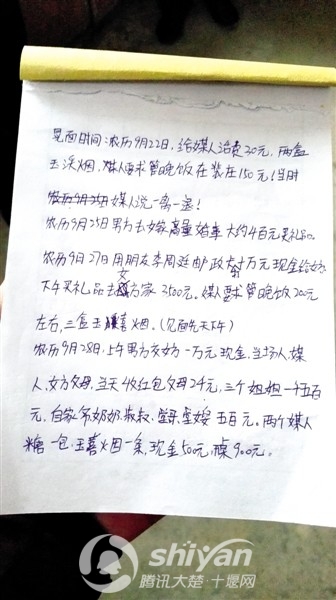 见面时间:农历9月22日,给媒人话费20元,两盒
玉溪烟,媒人要求管晚饭在 在150元(当时
农历9月25日媒人说一离一退)
农历9月25日男方去嫁商量婚事大约4百元买礼品。
农历9月27日用朋友李周延邮政卡十万元现金给女方
下午买礼品去女方家3500元。媒人要求管晚饭200元
左右,三盒玉溪喜烟。(见面先天下午)
农历9月28日,上午男方交女方一万元现金,当场人,媒
人,女方父母,当天4收红包父母24元,三个姐姐一千五百
元,自家爷奶奶,叔叔, 五百元。两个媒人
糖一包,玉喜烟一条,现金50元,桌900元。
shiyan
腾讯大楚·十堰网